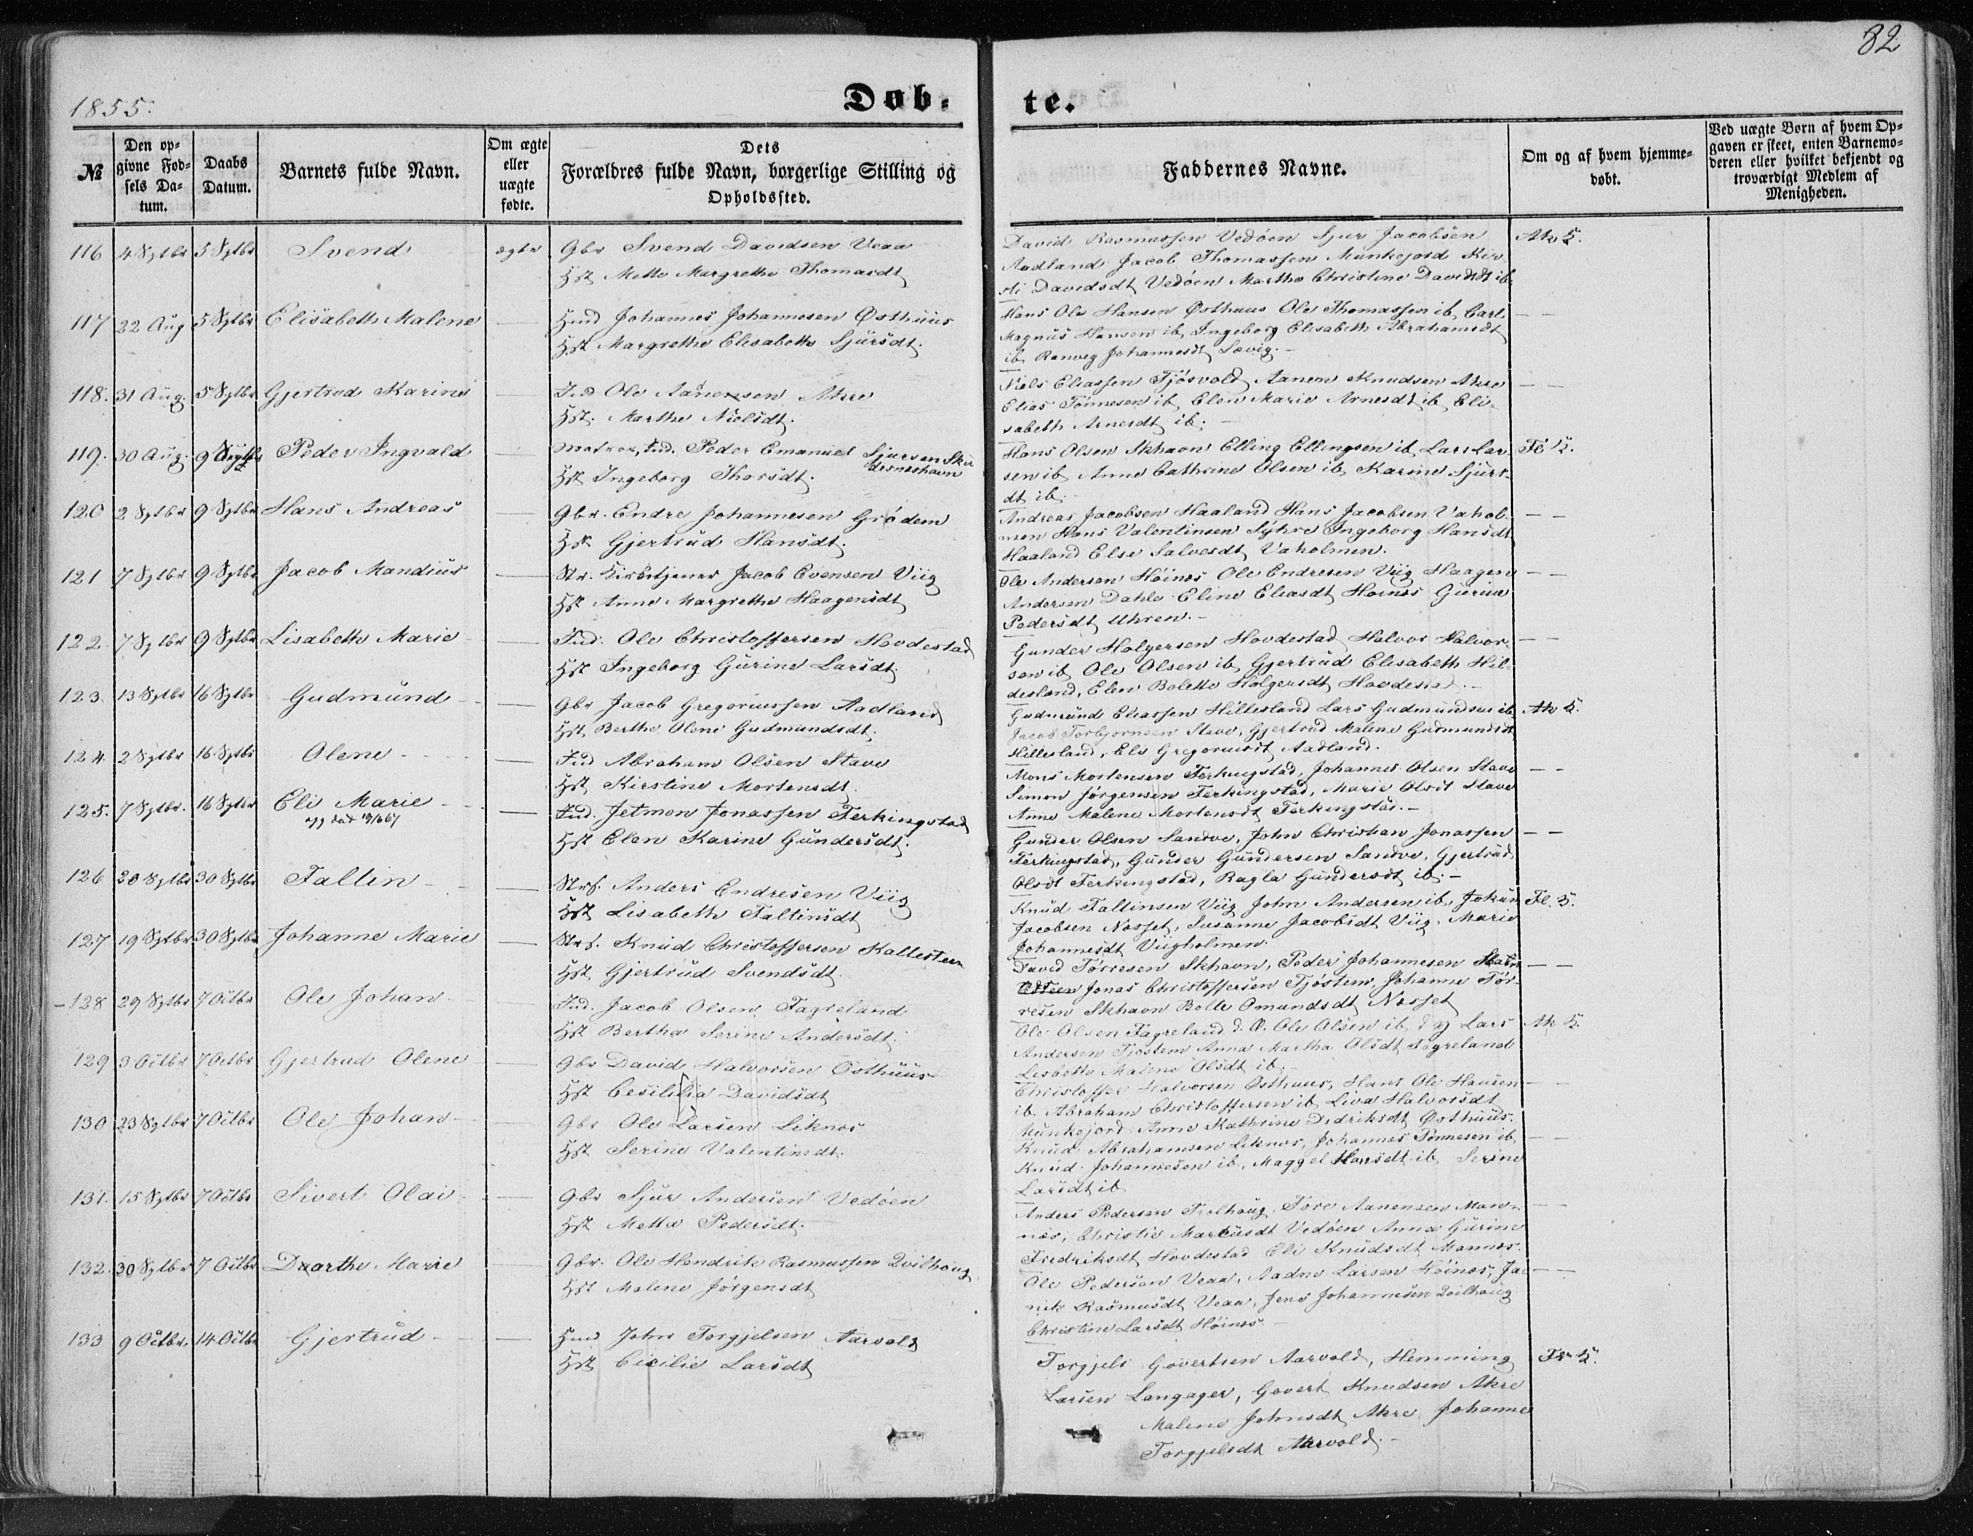 82
1855.
Døb-
te.
№
Den op-
givne Fød-
sels Da-
tum.
Daabs
Datum.
Barnets fulde Navn.
Om ægte
eller
uægte
fødte.
Dets
Forældres fulde Navn, borgerlige Stilling og
Opholdssted.
Faddernes Navne.
Om og af hvem hjemme-
døbt.
Ved uægte Børn af hvem Op-
gaven er skeet, enten Barnemo-
deren eller hvilket bekjendt og
troværdigt Medlem af
Menigheden.
116 4 Sptbr 5 Sptbr Svend Gbr Svend Davidsen Veaa
Hst Mette Margrethe Thomasdt
David Rasmussen Vedøen Sjur Jacobsen
Aadland Jacob Thomassen Munkejord Kir-
sti Davidsdt Vedøen Marthe Christine Davidsdt ib
117 22 Aug 5 Sptbr Elisabeth Malene — Huusd Johannes Johannesen Østhuus
Hst Margrethe Elisabeth Sjursdt.
Hans Ole Hansen Østhuus Ole Thomassen ib, Carl
Magnus Hansen ib, Ingeborg Elisabeth Abrahamsdt
ib Ranveg Johannesdt Sævig. — —
118. 31 Aug. 5 Sptbr Gjertrud Karine — Ind Ole Aanensen Akre
Hst. Marthe Nielsdt.
Niels Eliassen Tjøsvold, Aanen Knudsen Akre
Elias Tønnesen ib, Elen Marie Arnesdt ib, Eli-
sabeth Arnesdt ib. — —
119. 30 Aug. 9 Sptbr Peder Ingvald — Matros, Ind. Peder Emanuel Sjursen Sku
desneshavn
Hst Ingeborg Thorsdt.
Hans Olsen Skhavn Elling Ellingsen ib, Lars Lar-
sen ib Anne Cathrine Olsen ib, Karine Sjurs-
dt ib.
120 2 Sptbr 9 Sptbr Hans Andreas — Gbr. Endre Johannesen Grødem
Hst Gjertrud Hansdt.
Andreas Jacobsen Haaland Hans Jacobsen Vahol-
men Hans Valentinsen Syhre Ingeborg Hansdt
Haaland Else Salvesdt Vaholmen. — —
121 7 Sptbr 9 Sptbr Jacob Mandius — Str. Kirketjener Jacob Evensen Viig
Hst Anne Margrethe Haagensdt
Ole Andersen Høines Ole Endresen Viig Haagen
Andersen Dahle Eline Eliasdt Høines Gurine
Pedersdt Uhren. — —
122. 7 Sptbr 9 Sptbr Lisabeth Marie — Ind. Ole Christoffersen Hovdestad
Hst Ingeborg Gurine Larsdt.
Gunder Holgersen Hovdestad, Halvor Halvor-
sen ib, Ole Olsen ib, Gjertrud Elisabeth Hil-
desland, Elen Bolette Holgersdt Hovdestad. — —
123. 13 Sptbr 16 Sptbr Gudmund — Gbr Jacob Gregoriussen Aadland
Hst. Berthe Olene Gudmundsdt.
Gudmund Eliassen Hillesland Lars Gudmundsen ib
Jacob Torbjornsen Stave, Gjertrud Malene Gudmundsdt
Hillesland, Els Gregoriusdt, Aadland.
124. 2 Sptbr 16 Sptbr Olene — Ind Abraham Olsen Stave
Hst Kirstine Mortensdt.
Mons Mortensen Ferkingstad, Johannes Olsen Stave
Simon Jørgensen Ferkingstad, Marie Olsdt Stave
Anne Malene Mortensdt Ferkingstad. — —
125. 7 Sptbr. 16 Sptbr Eli Marie — Ind. Jetmon Jonassen Ferkingstad
Hst Elen Karine Gundersdt.
Gunder Olsen Sandve, John Christian Jonassen
Ferkingstad, Gunder Gundersen Sandve, Gjertrud
Olsdt Ferkingstad, Ragla Gundersdt ib. — —
126 20 Sptbr 30 Sptbr Faltin — Strs. Anders Endresen Viig
Hst Lisabeth Faltinsdt
Knud Faltinsen Viig John Andersen ib, Johan
Jacobsen Nosset, Susanne Jacobsdt Viig, Marie
Johannesdt Viigholmen.
127. 19 Sptbr 30 Sptbr Johanne Marie — Strs. Knud Christoffersen Kallesteen
Hst Gjertrud Svendsdt.
David Tørresen Skhavn, Peder Johannesen
Jonas Christoffersen Tjøstem, Johanne Tør-
resen Skhavn Bolle Omundsdt Nosset — —
128 29 Sptbr 7 Octbr Ole Johan — Ind. Jacob Olsen Fagreland
Hst Bertha Serine Andersdt.
Ole Olsen Fagreland d. Æ. Ole Olsen ib, d y Lars
Andersen Tjøstem Anna Martha Olsdt Fagreland
Lisbeth Malene Olsdt ib.
129 3 Octbr 7 Octbr Gjertrud Olene — Gbr David Halvorsen Østhuus
Hst Cecililia Davidsdt
Christoffer Halvorsen Østhuus, Hans Ole Hansen
ib Abraham Christoffersen ib, Liva Halvorsdt
Munkejord Anne Kathrine Didriksdt Østhuus. — —
130 23 Sptbr 7 Octbr Ole Johan — Gbr Ole Larsen Liknes
Hst Serine Valentinsdt.
Knud Abrahamsen Liknes, Johannes Tønnesen ib,
Knud Johannesen ib, Maggel Hansdt ib, Serine
Larsdt ib — —
131. 15 Sptbr 7 Octbr Sivert Olai — Gbr Sjur Andersen Vedøen
Hst Metta Pedersdt.
Anders Pedersen Tvilhoug, Tore Aanensen Man-
nes, Christie Markusdt Vedøen Anna Gurine
Fredriksdt Hovdestad Eli Knudsdt Mannes. — —
132. 30 Sptbr 7 Octbr Daarthe Marie — Gbr. Ole Hendrik Rasmussen Qvilhoug
Hst Malene Jørgensdt
Ole Pedersen Veaa, Aadne Larsen Høines, Ja-
nik Rasmusdt Veaa, Jens Johannesen Qvilhoug
Christine Larsdt Høines — —
133 9 Octbr. 14 Octbr Gjertrud — Huusd John Torgjelsen Aarvold
Hst Cicilie Larsdt
Torgjels Govertsen Aarvold, Hemming
Larsen Langager, Govert Knudsen Akre
Malene Johnsdt Akre, Johanne
Torgjelsdt Aarvold. —